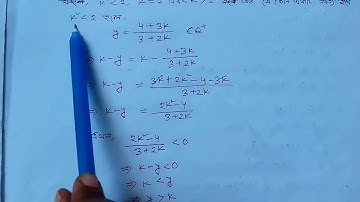 k² < 2, k² = 2 k² > 2
k² < 2
y = (4+3k)/(3+2k) ∈ Q⁺
⇒ k-y = k - (4+3k)/(3+2k)
⇒ k-y = (3k+2k²-4-3k)/(3+2k)
⇒ k-y = (2k²-4)/(3+2k)
(2k²-4)/(3+2k) < 0
⇒ k-y < 0
⇒ k < y
⇒ y > k